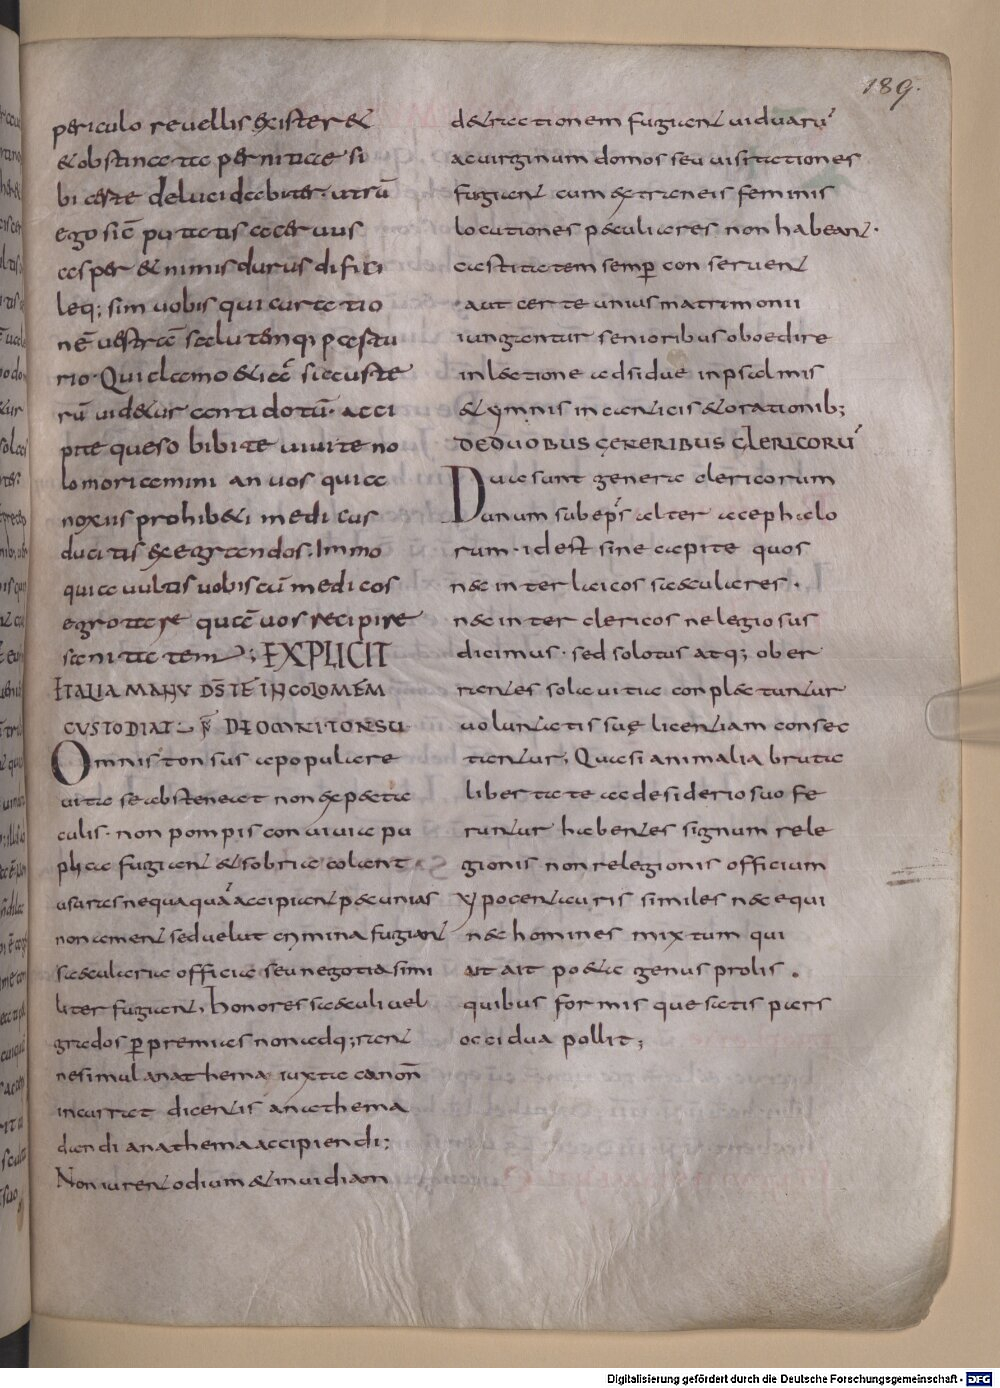 189.
periculo revellis existere &
& obstinatae pernitiae si
bi certe delucidabitur. utrū
ego sic̄ putatis acervus
asper & nimis durus difici
leq; sim vobis qui curatio
nē vestrā salutēmq;
rio. Qui clamo &
rū vid&ur antidotū. acci
pite queso bibite vivite no
lo moriamini an vos quia
noxiis prohib&i medicus
ducitis ex egrendos. Immo
quia vultis vobiscū medicos
egrotare quā vos recipire
sanitatem; EXPLICIT
ITALIA MANV DS̄ TE INCOLOMEM
CVSTODIAT
Omnis tonsus a populare
vita se absteneat non expecta
culis. non pompis convivia pu
plica fugiant & sobria colent
usuras nequaquā accipiant pecunias
non ament sed velut crimina fugiant
saecularia officia seu negotia simi
liter fugiant, honores saeculi vel
gradus per premias non adq;rant
ne simul anathema iuxta canon̄
incurrat dicentis anathema
dandi anathema accipiendi;
Non iurent odium & invidiam
d&ractionem fugiant viduarū
ac virginum domos seu visitationes
fugiant cum extraneis feminis
locutiones peculiares non habeant.
castitatem semper conservent
aut certe unius matrimonii
iungantur senioribus oboedire
in lectione adsidue in psalmis
& ymnis in canticis & orationib;
DE DVOBVS GENERIBVS CLERICORŪ
Duae sunt genera clericorum
unum sub ep̄s alter acephalo
rum. id est sine capite quos
nec inter laicos saeculares.
nec inter clericos relegiosus
dicimus. sed solotus atq; ober
rantes sola vita conplectuntur
voluntatis sue licentiam consec
tantur; Quasi animalia bruta
libertate ac desiderio suo fe
runtur habentes signum rele
gionis non relegionis officium
ypocentauris similes nec equi
nec homines mixtum qui
ait ait po&a genus prolis.
quibus formis que satis pars
occidua pollit;
Digitalisierung gefördert durch die Deutsche Forschungsgemeinschaft - DFG